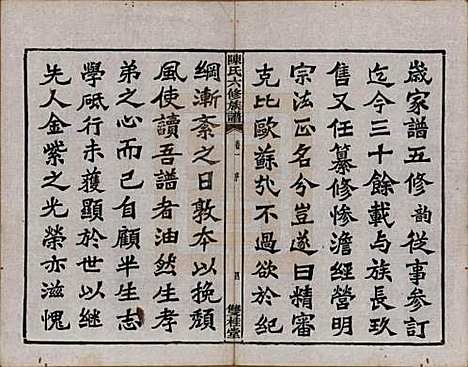 歲家譜五修韵從事參訂
迄今三十餘載与族長玖
售又任纂修慘澹經營明
宗法正名分豈遂曰精審
克比歐蘇于不過欲於紀
陳氏六修族譜 卷一 序 四 雙桂堂
綱漸紊之日敦本以挽頹
風使讀吾譜者油然生孝
弟之心而已自顧半生志
學砥行未獲顯於世以繼
先人金紫之光榮亦滋愧